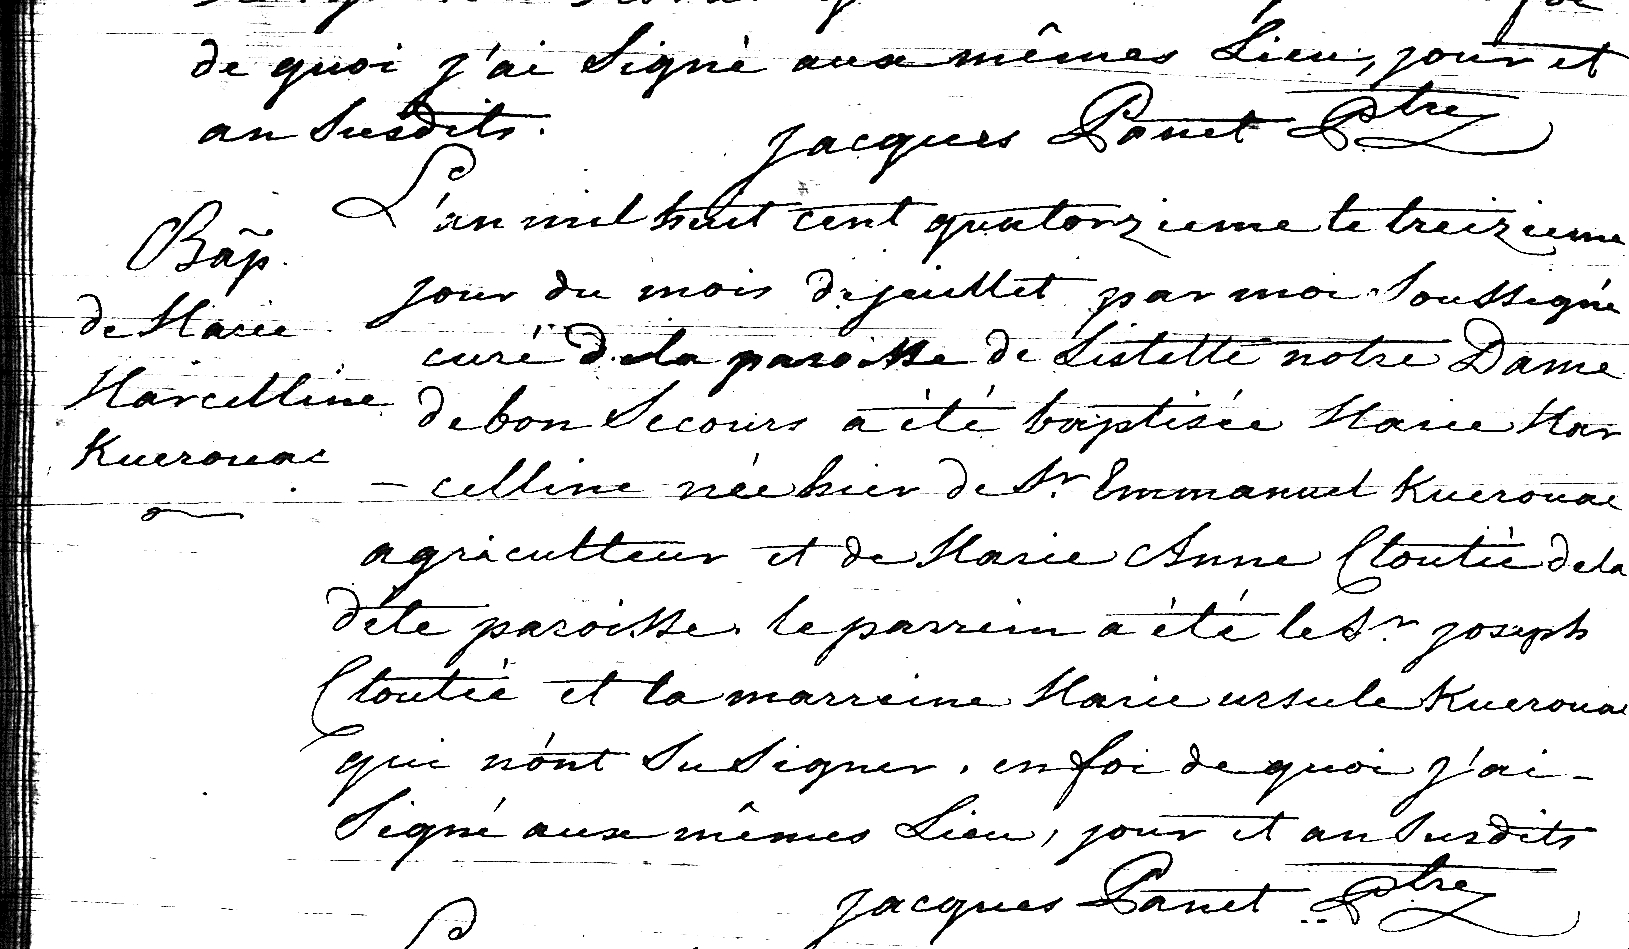 de quoi j'ai Signé aux mêmes Lieu, jour et
an Susdits.
Jacques Panet Ptre
Bap.
de Marie
Marcelline
Kuerouac
L'an mil huit cent quatorzieme le treizieme
jour du mois de juillet par moi Soussigné
curé de la paroisse de Lislette notre Dame
de bon Secours a été baptisée Marie Mar
- celline née hier de Sr. Emmanuel Kuerouac
agriculteur et de Marie Anne Cloutié de la
dete paroisse. le parrein a été le Sr joseph
Cloutié et la marreine Marie ursule Kuerouac
qui n'ont Su Signer. en foi de quoi j'ai -
Signé aux mêmes Lieu, jour et an Susdits
Jacques Panet Ptre